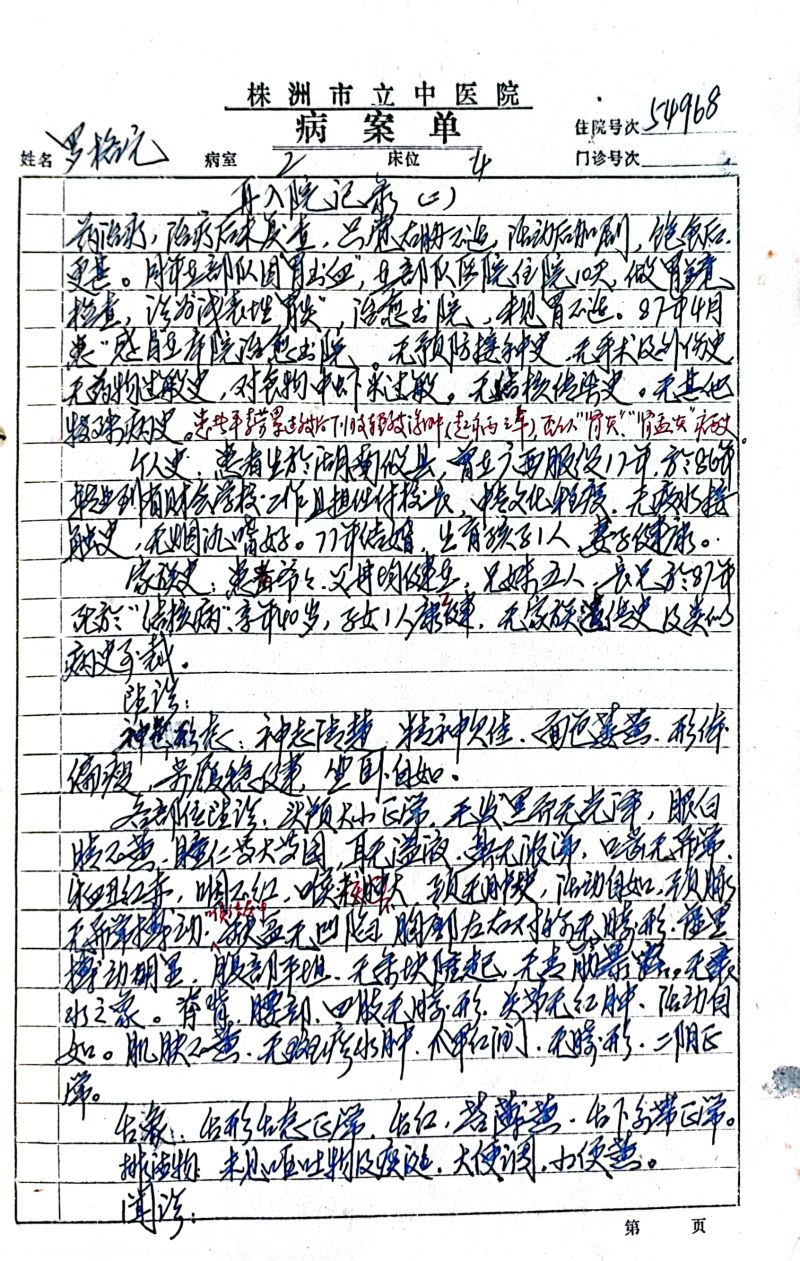 株洲市立中医院
病案单
住院号次 54968
姓名 罗格元 病室 2 床位 4 门诊号次
再入院记录(二)
药治疗，治疗后未复查，只觉右胁不适，活动后加剧，饱食后
更甚。同年在部队因"胃出血"，在部队医院住院10天，做胃镜
检查，诊为浅表性胃炎"，治愈出院，未见胃不适。87年4月
患"感冒在 院治愈出院。无预防接种史，无手术及外伤史
无药物过敏史，对食物中虾米过敏。无结核传染史。无其他
特殊病史。
个人史，患者生于湖南攸县，曾在广西服役17年，于86年
转业到省财会学校工作且担任付校长，中专文化程度，无疫水接
触史，无烟酒嗜好。77年结婚，生育孩子1人，妻子健康。
家族史：父母均健在，兄妹五人，长兄于87年
死于"结核病"，享年40岁，子女1人康健，无家族遗传史及类似
病史可载。
望诊：
神色形态：神志清楚，精神欠佳，面色萎黄，形体
偏瘦，步履稳健，坐卧自如。
各部位望诊，头颅大小正常，毛发黑而无光泽，眼白
睛不黄，瞳仁等大等圆，耳无溢液，鼻无液涕，口齿无异常，
咽不红，喉核 大，颈无肿块，活动自如，颈脉
无异常搏动，缺盆无凹陷，胸部左右对称无畸形，虚里
搏动明显，腹部平坦，无条块隆起，无青筋暴露。无 
水之象。脊背，腰部，四肢无畸形，关节无红肿，活动自
如。肌肤不黄，无斑疹水肿，爪甲红润，无畸形，二阴正
常。
舌象：舌形舌态正常，舌红，苔薄黄，舌下络带正常。
排泄物：未见呕吐物及痰涎，大便调，小便黄。
闻诊：
第 页